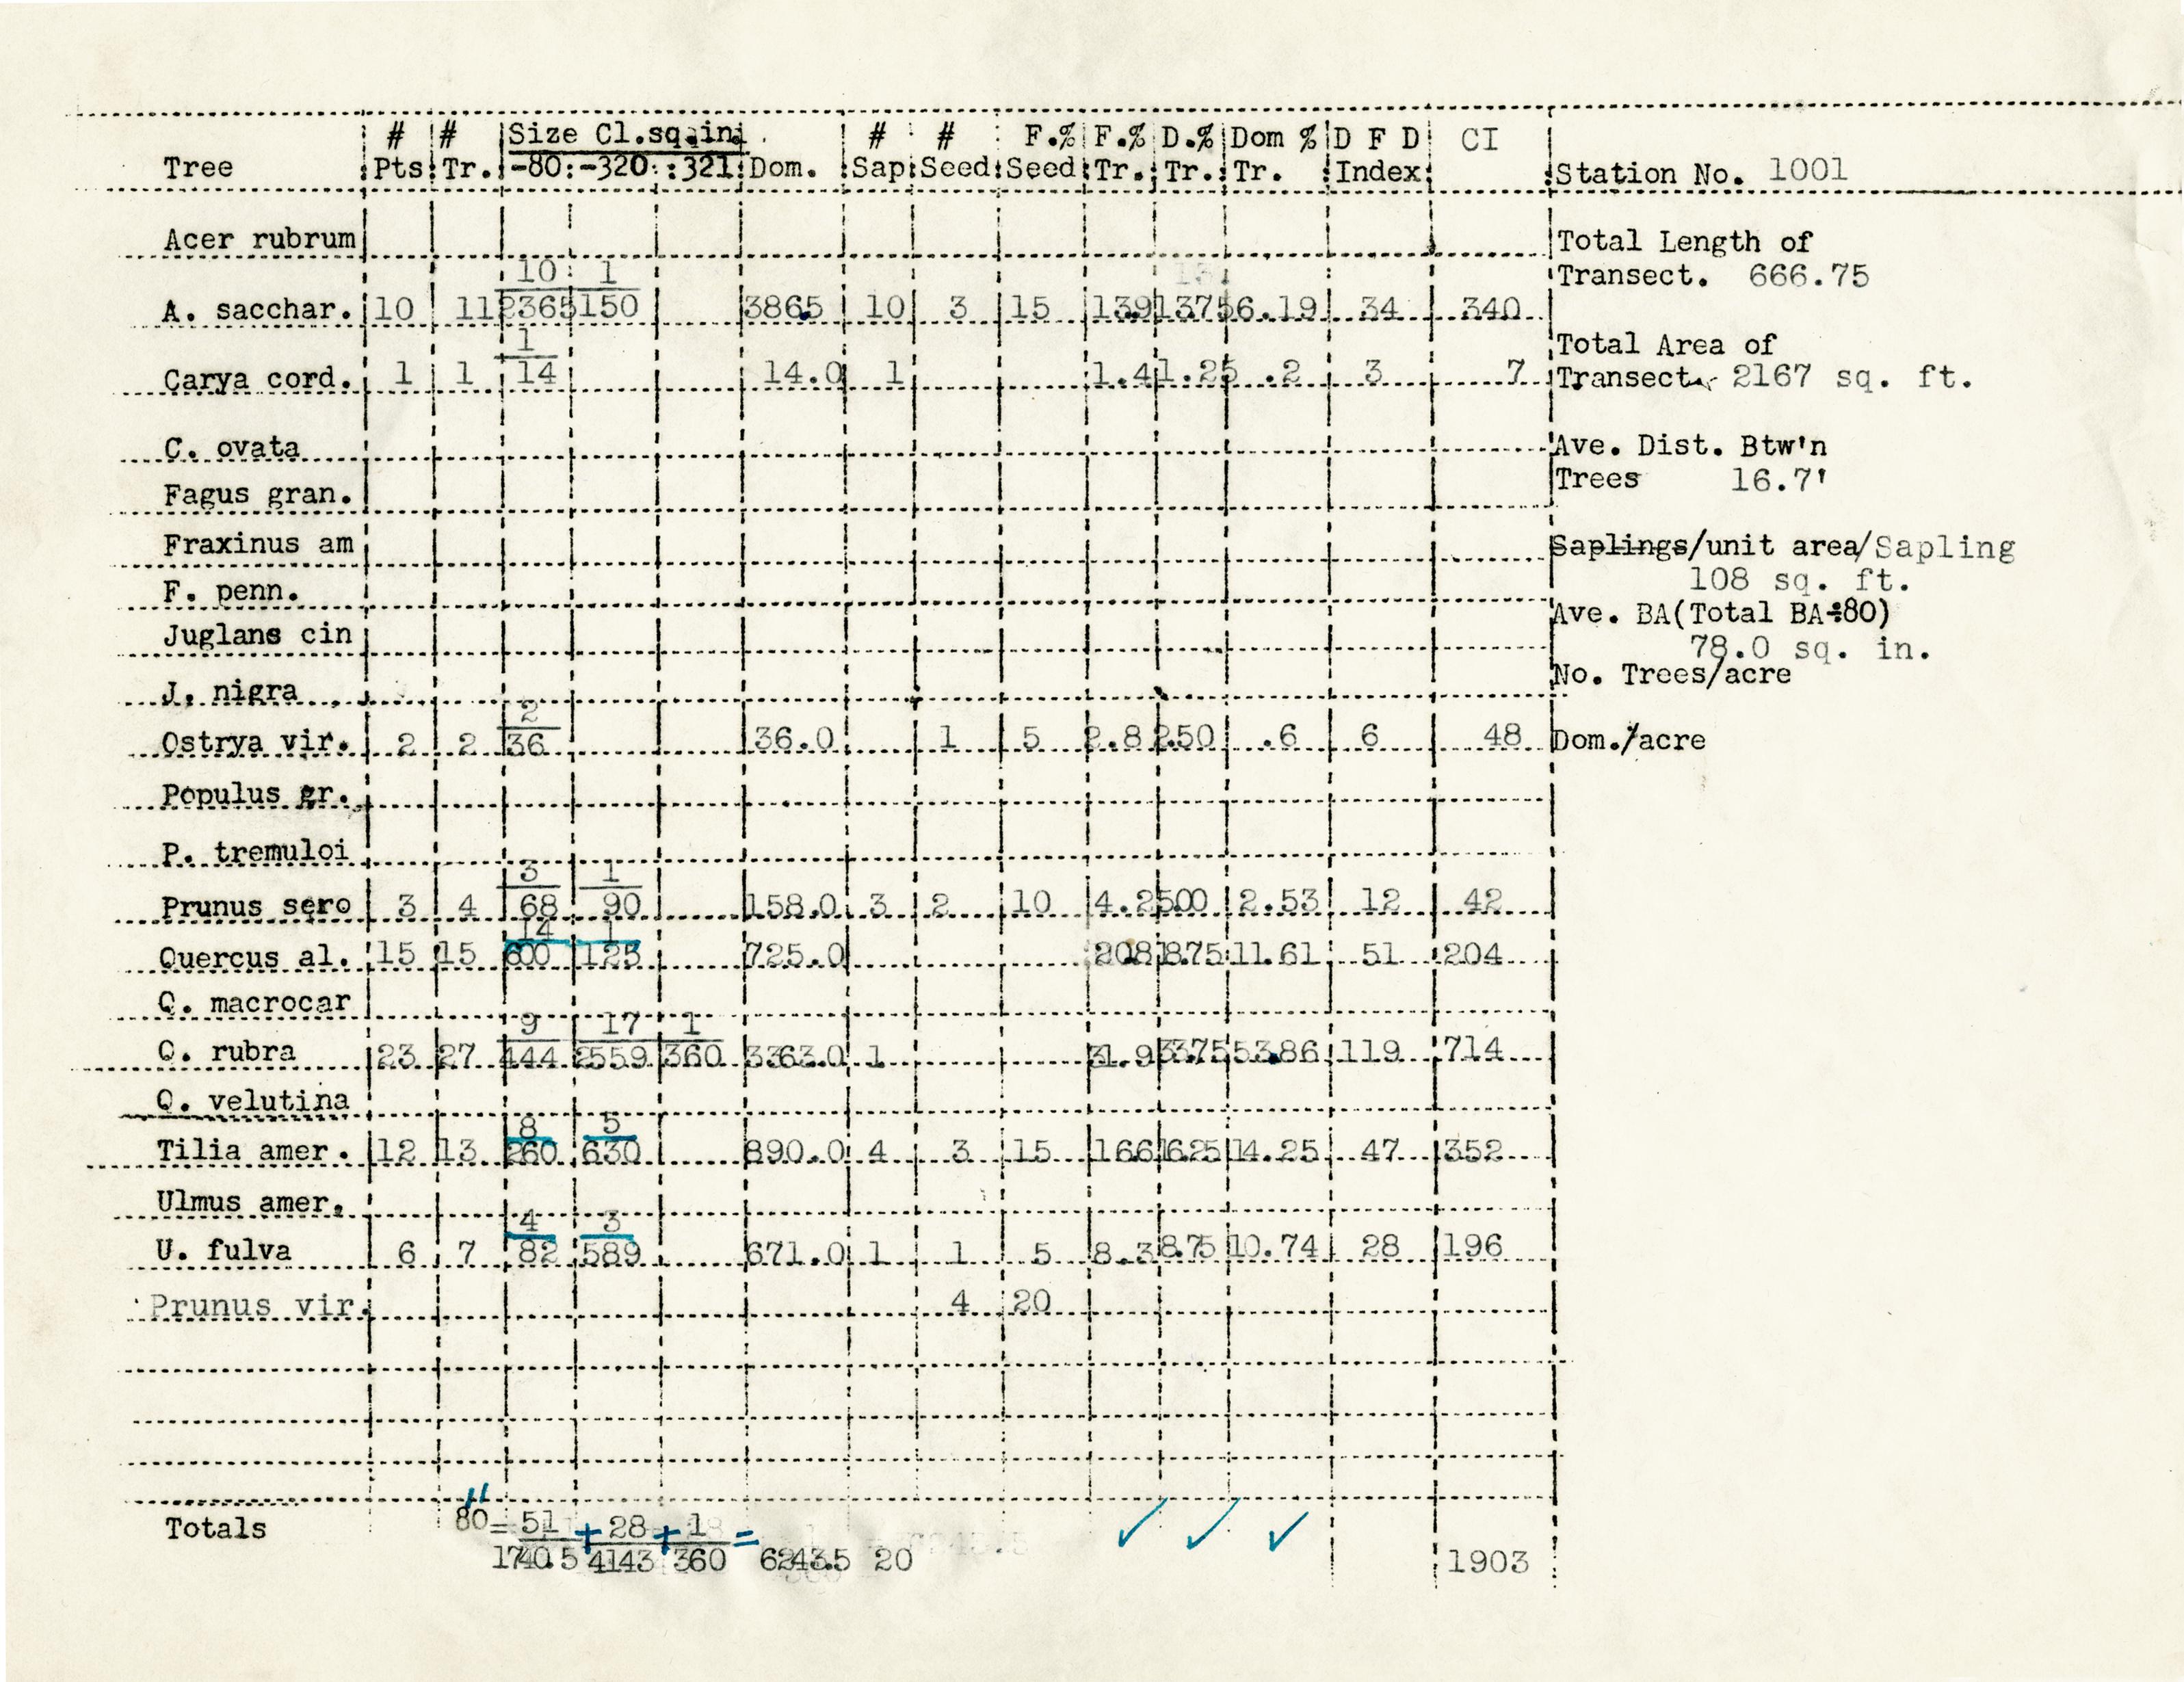 # # Size Cl.sq.in. # # F.% F.% D.% Dom % D F D CI
Tree Pts Tr. -80:-320::321 Dom. Sap Seed Seed Tr. Tr. Tr. Index Station No. 1001
Acer rubrum Total Length of
10 1 Transect. 666.75
A. sacchar. 10 11 2365 150 3865 10 3 15 139 1375 6.19 34 340
1 Total Area of
Carya cord. 1 1 14 14.0 1 1.4 1.25 .2 3 7 Transect. 2167 sq. ft.
C. ovata Ave. Dist. Btw'n
Fagus gran. Trees 16.7'
Fraxinus am Saplings/unit area/Sapling
F. penn. 108 sq. ft.
Ave. BA(Total BA÷80)
Juglans cin 78.0 sq. in.
J. nigra No. Trees/acre
2
Ostrya vir. 2 2 36 36.0 1 5 2.8 2.50 .6 6 48 Dom./acre
Populus gr.
P. tremuloi
3 1
Prunus sero 3 4 68 90 158.0 3 2 10 4.2 500 2.53 12 42
14 1
Quercus al. 15 15 600 125 725.0 208 1875 11.61 51 204
Q. macrocar
9 17 1
Q. rubra 23 27 444 2559 360 3363.0 1 31.9 3375 53.86 119 714
Q. velutina
8 5
Tilia amer. 12 13 260 630 890.0 4 3 15 166 1625 14.25 47 352
Ulmus amer.
4 3
U. fulva 6 7 82 589 671.0 1 1 5 8.3 8.75 10.74 28 196
Prunus vir. 4 20
"
Totals 80= 51 + 28 + 1 =
1740.5 4143 360 6243.5 20 1903